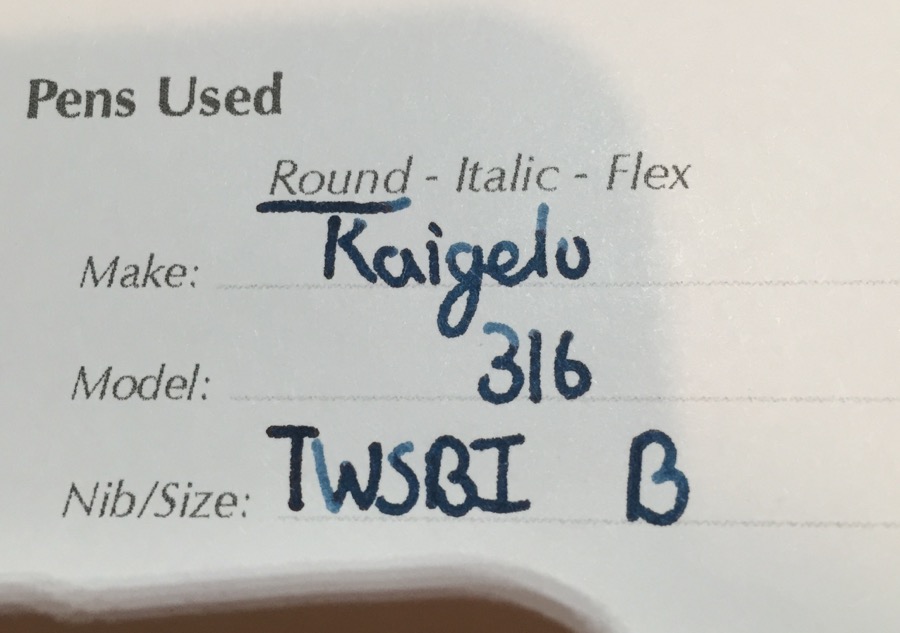 Pens Used
Round - Italic - Flex
Make: Kaigelu
Model: 316
Nib/Size: TWSBI B